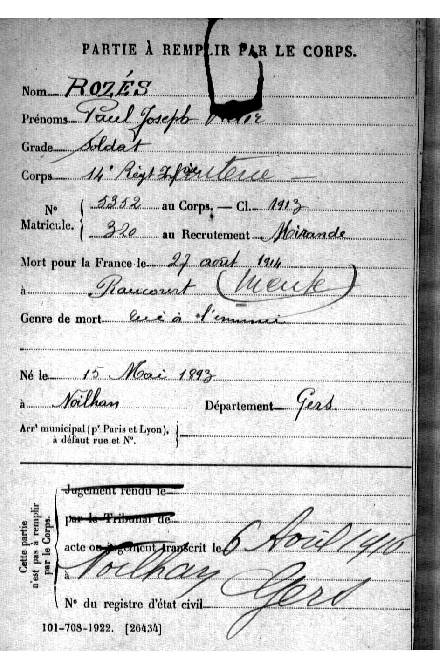 PARTIE À REMPLIR PAR LE CORPS.
Nom ROZÉS
Prénoms Paul Joseph
Grade Soldat
Corps 14e Régt Infanterie
N° Matricule. { 5352 au Corps. — Cl. 1913
320 au Recrutement Mirande
Mort pour la France le 27 août 1914
à Raucourt (Meuse)
Genre de mort tué à l'ennemi
Né le 15 Mai 1893
à Noilhan Département Gers
Arrt municipal (pr Paris et Lyon), à défaut rue et N°.
Cette partie n'est pas à remplir par le Corps.
Jugement rendu le
par le Tribunal de
acte ou jugement transcrit le 6 Avril 1916
à Noilhan Gers
N° du registre d'état civil
101-708-1922. [26434]